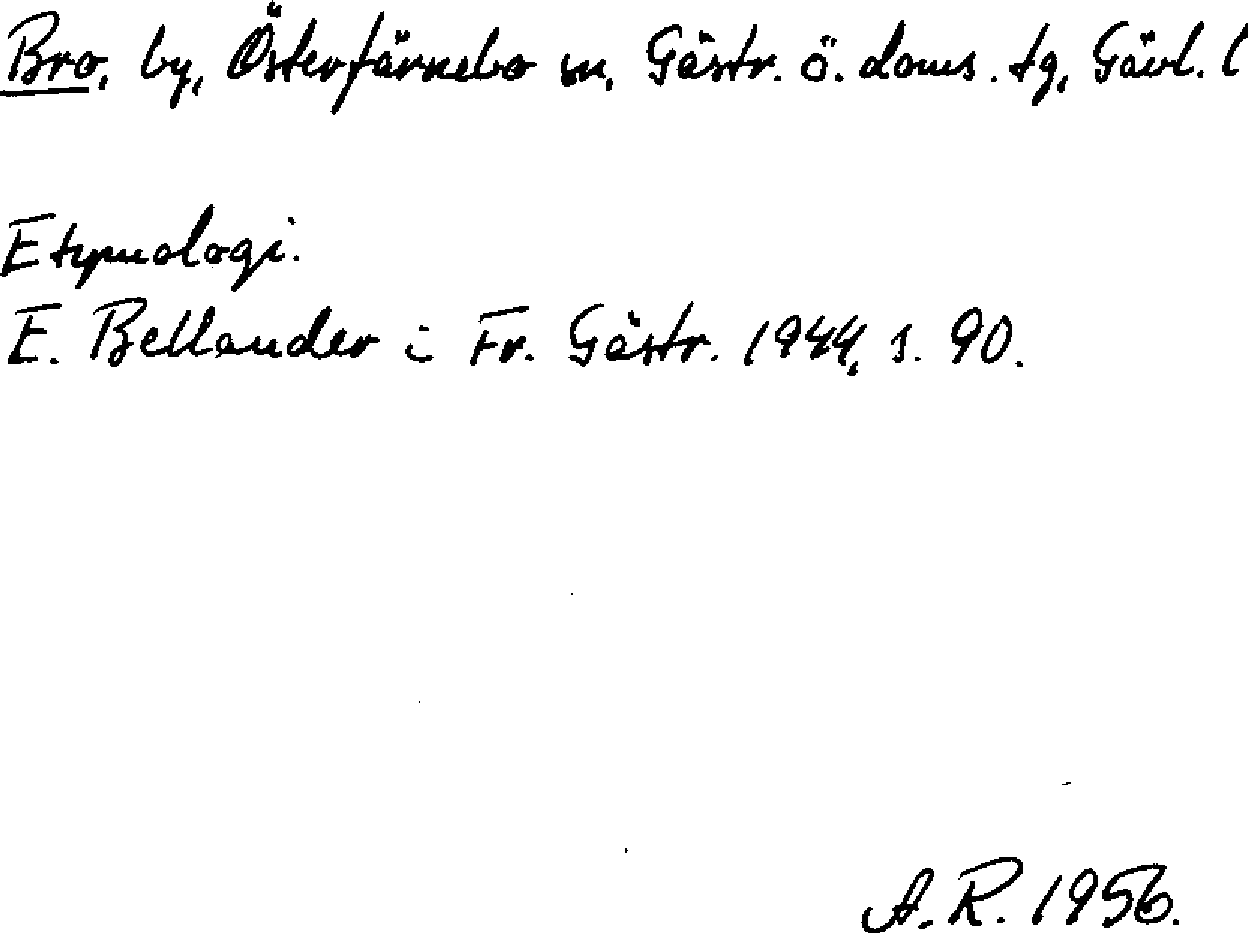 Bro, by, Österfärnebo sn, Gästr. ö. doms. tg, Gävl. l
Etymologi.
E. Bellander i Fr. Gästr. 1944, s. 90.
A. R. 1956.